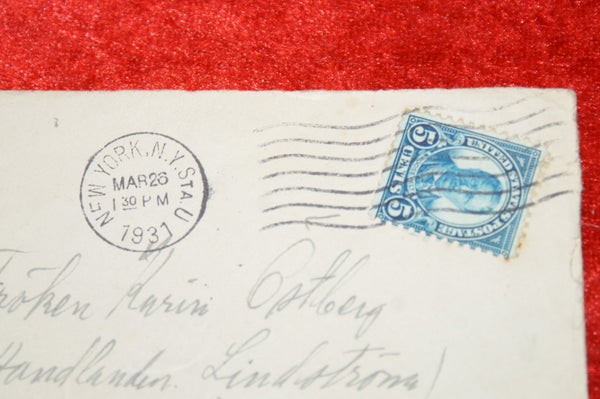 NEW YORK, N.Y. STA. U
MAR 26
1 30 PM
1931
UNITED STATES POSTAGE
5 CENTS 5
Fröken Karin Ostberg
Handlanden. Lindström